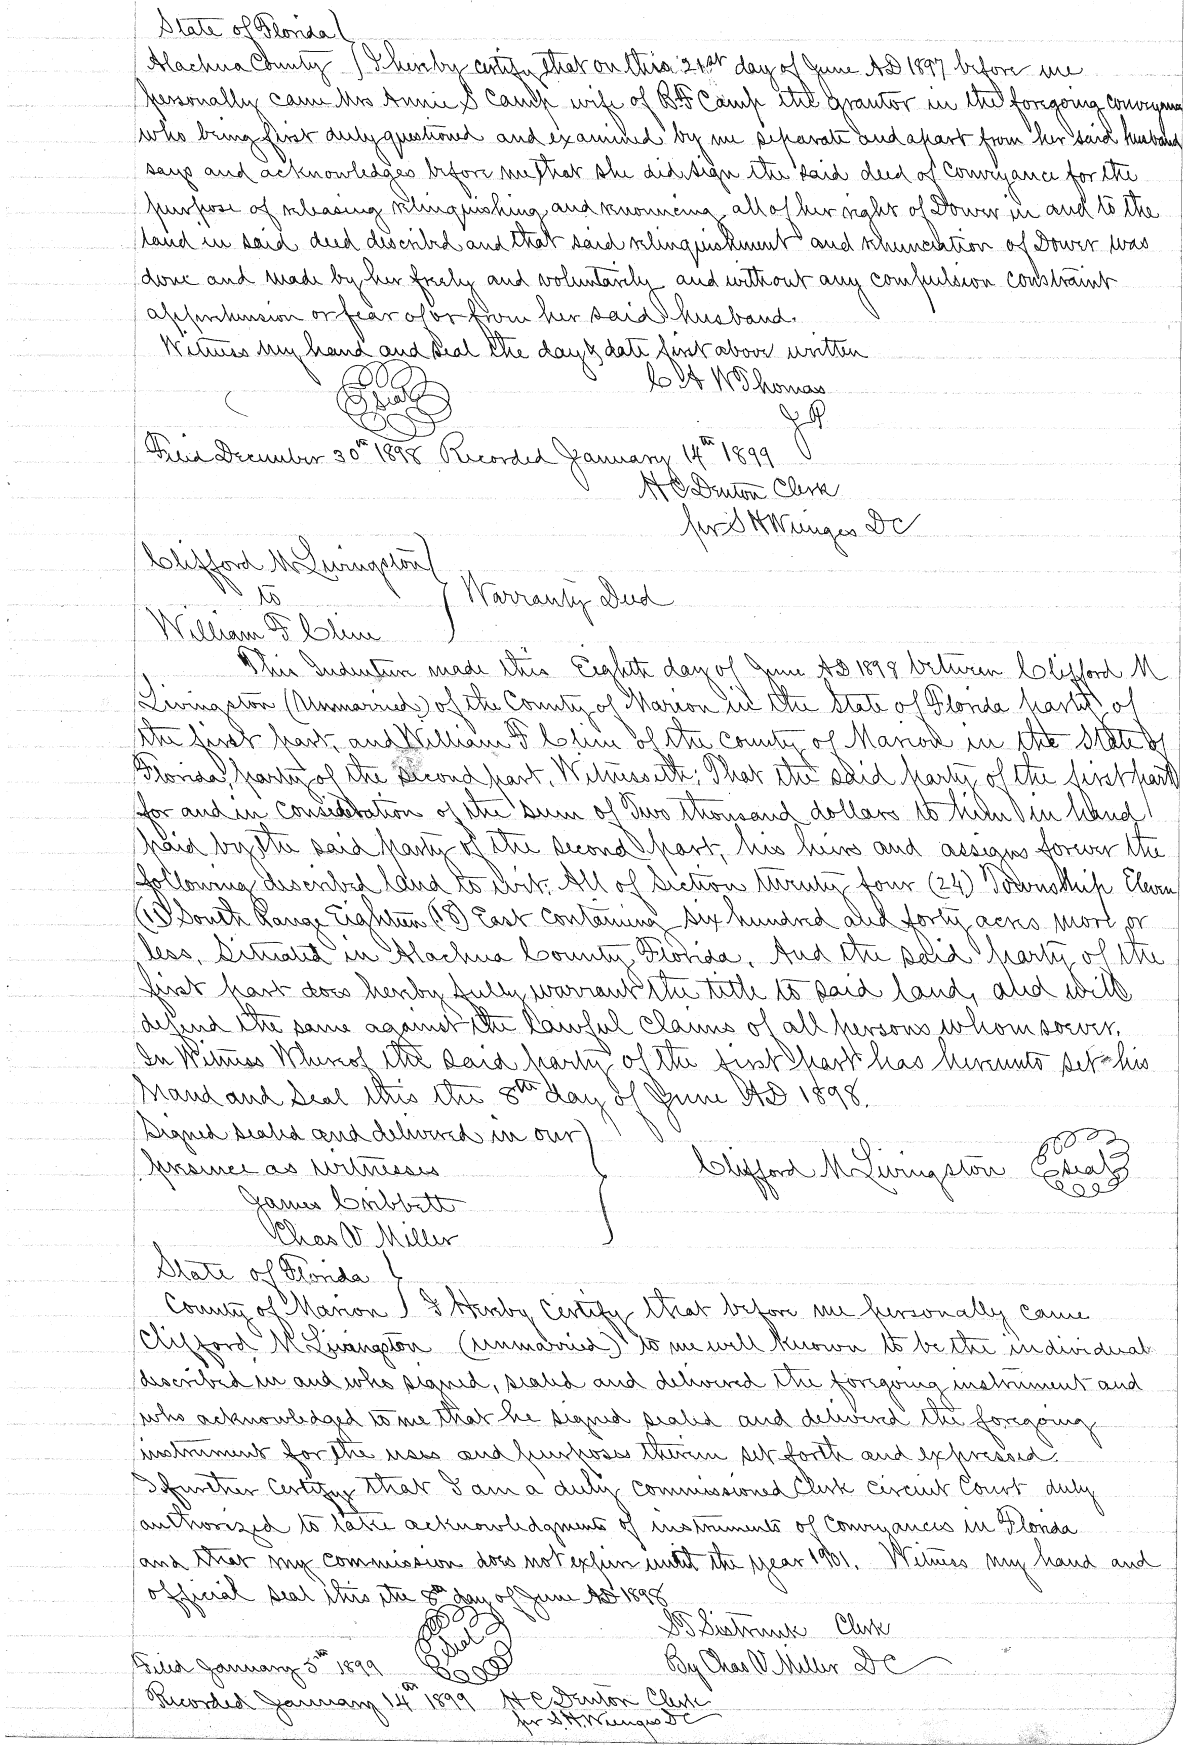 State of Florida
Alachua County I hereby certify that on this 21st day of June AD 1897 before me
personally came Mrs Annie S Camp wife of R F Camp the grantor in the foregoing conveyance
who being first duly questioned and examined by me separate and apart from her said husband
says and acknowledges before me that she did sign the said deed of conveyance for the
purpose of releasing relinquishing and renouncing all of her right of Dower in and to the
land in said deed described and that said relinquishment and renunciation of Dower was
done and made by her freely and voluntarily and without any compulsion constraint
apprehension or fear of or from her said husband.
Witness my hand and seal the day & date first above written
Seal C A W Thomas
J P
Filed December 30th 1898 Recorded January 14th 1899
H C Denton Clerk
per S H Wienges DC
Clifford M Livingston
to Warranty Deed
William F Cline
This Indenture made this Eighth day of June AD 1898 between Clifford M
Livingston (Unmarried) of the County of Marion in the State of Florida party of
the first part, and William F Cline of the county of Marion in the State of
Florida, party of the second part, Witnesseth: That the said party of the first part
for and in consideration of the sum of Two thousand dollars to him in hand
paid by the said party of the second part, his heirs and assigns forever the
following described land to wit: All of Section twenty four (24) Township Eleven
(11) South Range Eighteen (18) East containing six hundred and forty acres more or
less, Situated in Alachua County, Florida. And the said party of the
first part does hereby fully warrant the title to said land, and will
defend the same against the lawful claims of all persons whomsoever.
In Witness Whereof the said party of the first part has hereunto set his
Hand and Seal this the 8th day of June AD 1898.
Signed sealed and delivered in our
presence as witnesses Clifford M Livingston Seal
James Cribbett
Chas V. Miller
State of Florida
County of Marion I Hereby Certify that before me personally came
Clifford M Livingston (unmarried) to me well known to be the individual
described in and who signed, sealed and delivered the foregoing instrument and
who acknowledged to me that he signed sealed and delivered the foregoing
instrument for the uses and purposes therein set forth and expressed.
I further certify that I am a duly commissioned Clerk circuit Court duly
authorized to take acknowledgments of instruments of conveyances in Florida
and that my commission does not expire until the year 1901. Witness my hand and
official seal this the 8th day of June AD 1898
Seal S T Sistrunk Clerk
Filed January 5th 1899 By Chas V. Miller DC
Recorded January 14th 1899 H C Denton Clerk
per S. H. Wienges DC